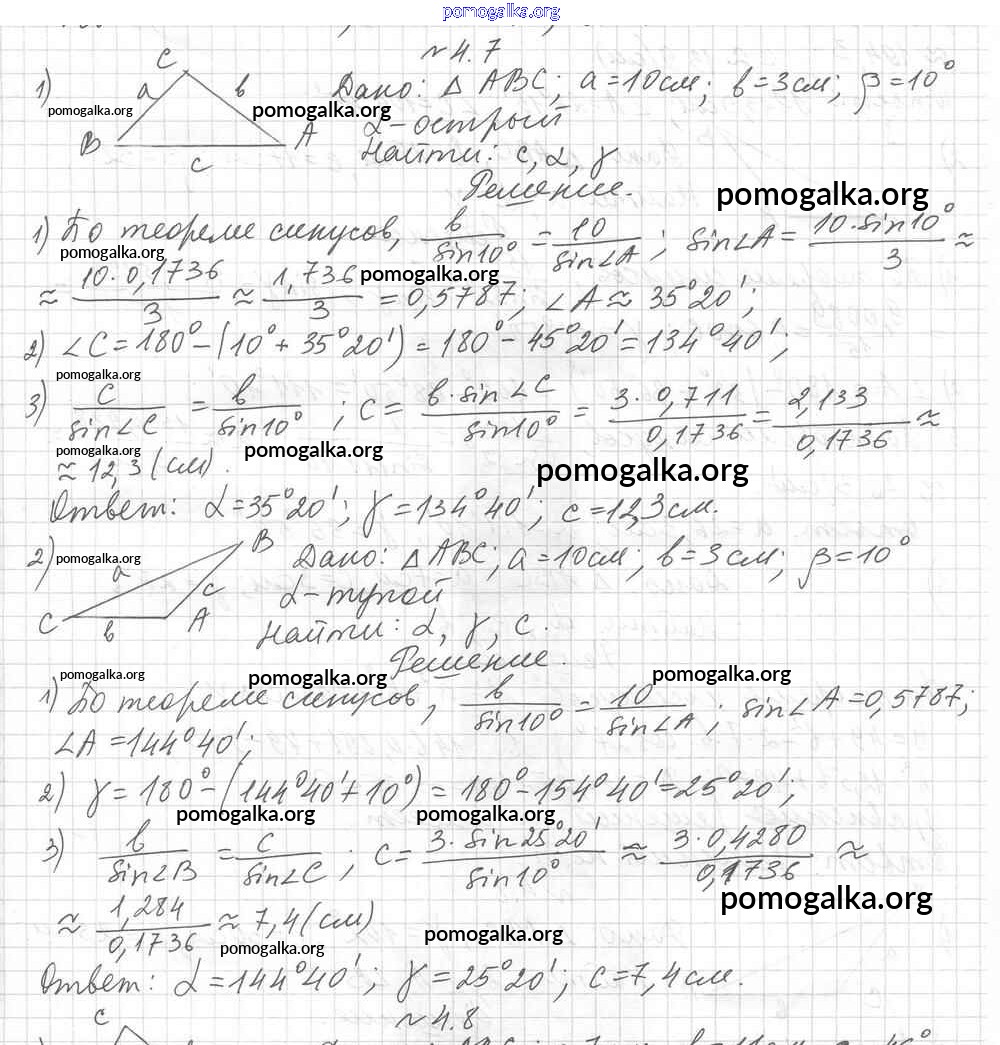 pomogalka.org
№ 4.7
1) C a в B A c
Дано: △ ABC; a=10см; в=3см; β=10°
pomogalka.org pomogalka.org
α-острый
Найти: c, α, γ
Решение.
pomogalka.org
1) По теореме синусов, в/sin10° = 10/sin∠A; sin∠A = 10·sin10°/3 ≈
pomogalka.org pomogalka.org
≈ 10·0,1736/3 ≈ 1,736/3 = 0,5787; ∠A ≈ 35°20';
2) ∠C = 180° - (10° + 35°20') = 180° - 45°20' = 134°40';
pomogalka.org
3) c/sin∠C = в/sin10°; c = в·sin∠C/sin10° = 3·0,711/0,1736 = 2,133/0,1736 ≈
pomogalka.org pomogalka.org pomogalka.org
≈ 12,3 (см).
Ответ: α=35°20'; γ=134°40'; c=12,3см.
2) B a c C в A
Дано: △ ABC; a=10см; в=3см; β=10°
pomogalka.org
α-тупой
Найти: α, γ, c.
Решение.
pomogalka.org pomogalka.org pomogalka.org
1) По теореме синусов, в/sin10° = 10/sin∠A; sin∠A=0,5787;
∠A = 144°40';
2) γ = 180° - (144°40' + 10°) = 180° - 154°40' = 25°20';
pomogalka.org pomogalka.org
3) в/sin∠B = c/sin∠C; c = 3·sin25°20'/sin10° ≈ 3·0,4280/0,1736 ≈
pomogalka.org
≈ 1,284/0,1736 ≈ 7,4(см)
pomogalka.org pomogalka.org
Ответ: α=144°40'; γ=25°20'; c=7,4см.
№ 4.8
C